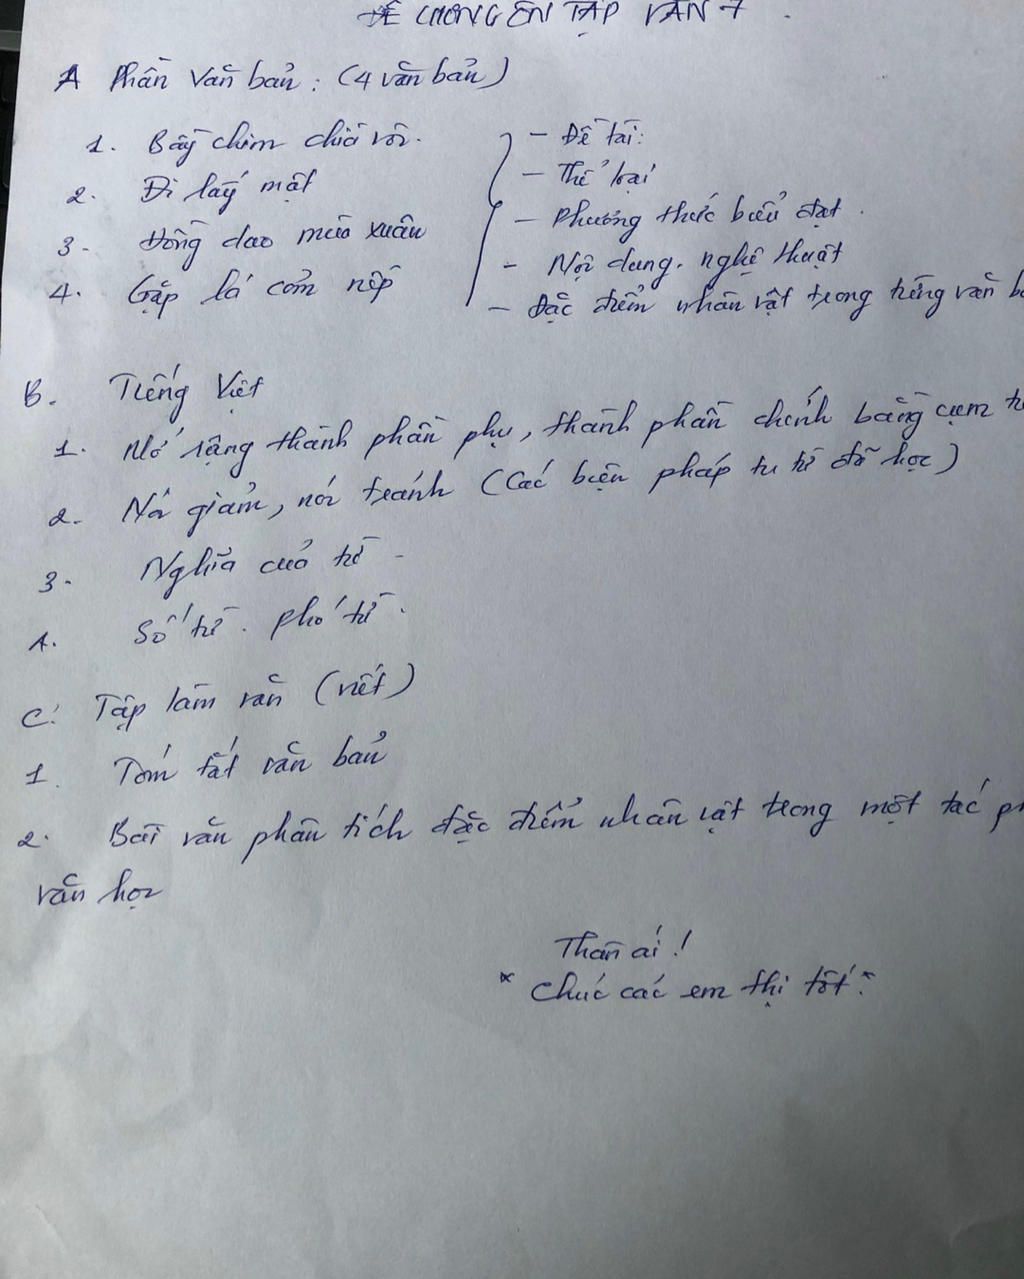 ĐỀ CƯƠNG ÔN TẬP VĂN 7
A Phần Văn bản : (4 văn bản)
1. Bầy chim chìa vôi.
2. Đi lấy mật
3. Đồng dao mùa xuân
4. Gặp lá cơm nếp
- Đề tài:
- Thể loại
- Phương thức biểu đạt.
- Nội dung, nghệ thuật
- Đặc điểm nhân vật trong từng văn
B. Tiếng Việt
1. Mở rộng thành phần phụ, thành phần chính bằng cụm
2. Nói giảm, nói tránh (Các biện pháp tu từ đã học)
3. Nghĩa của từ
4. Số từ. phó từ.
C. Tập làm văn (viết)
1. Tóm tắt văn bản
2. Bài văn phân tích đặc điểm nhân vật trong một tác
văn học
Thân ái !
* Chúc các em thi tốt *